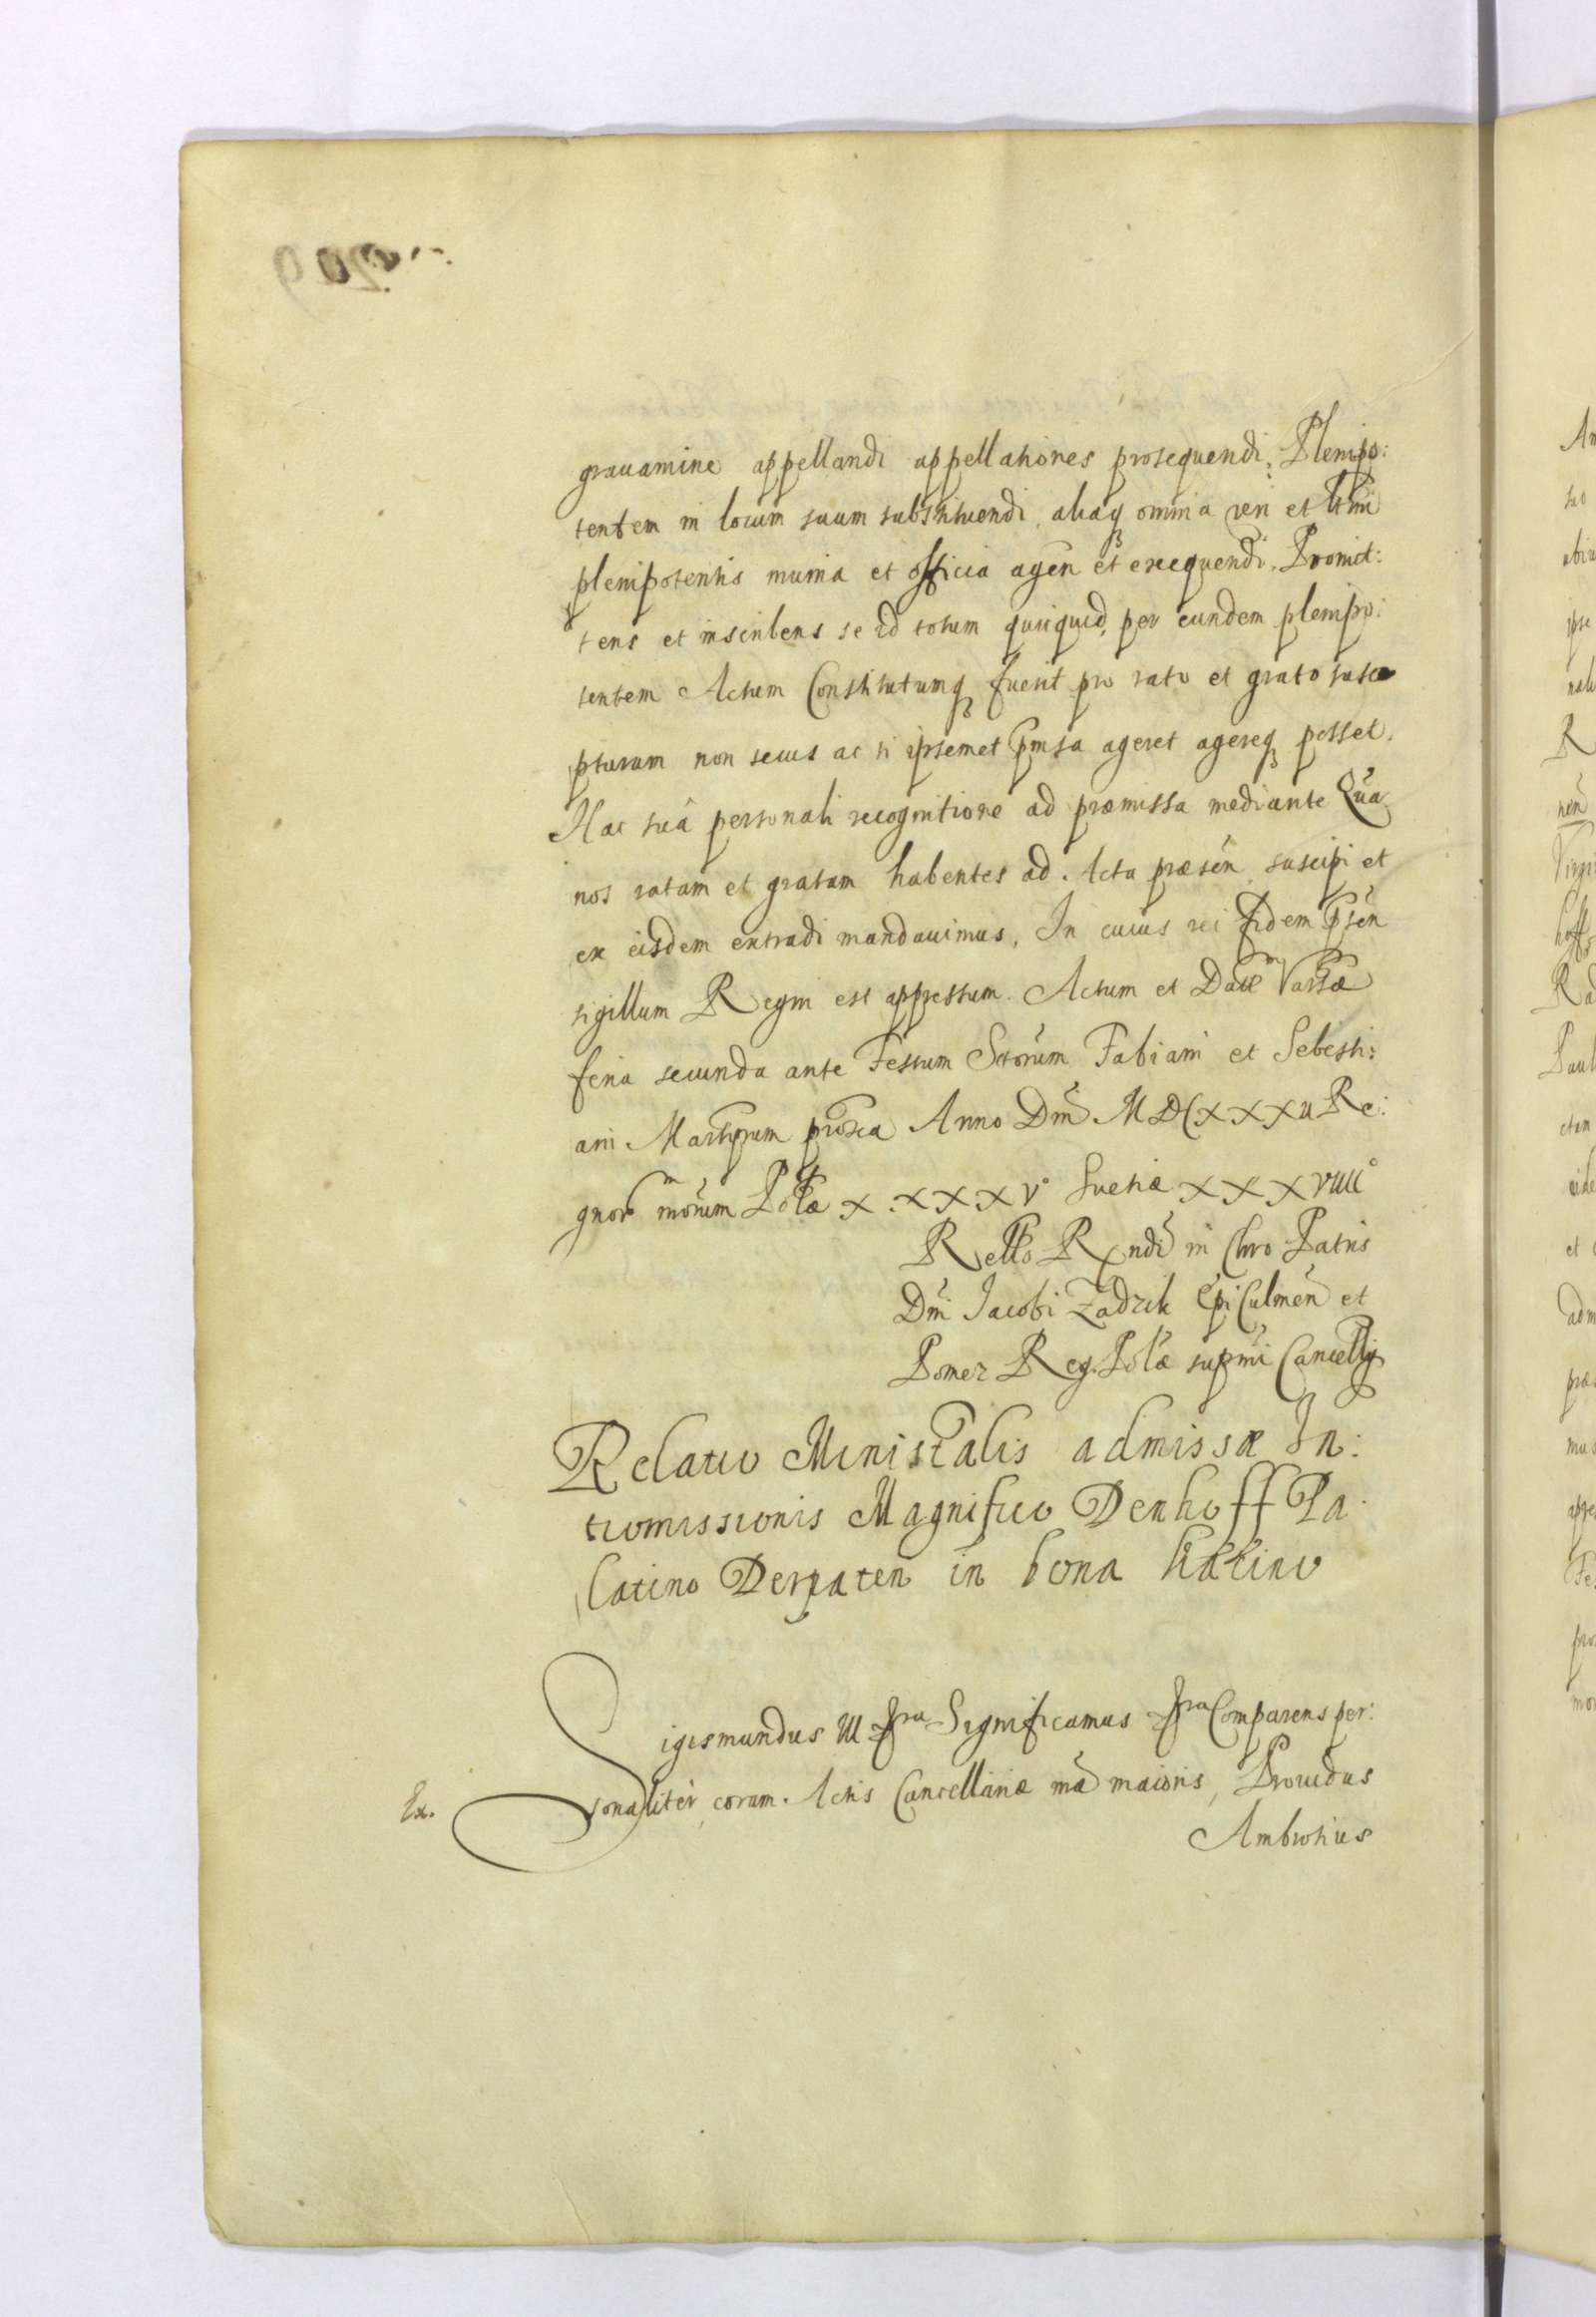 grauamine appellandi appellationes prosequendi, Plenipo:
tentem in locum suum substituendi, aliaq omnia veri et ltmi
plenipotentis munia et officia agen et exequendi, Promit:
tens et inscribens se id totum quicquid per eundem plenipo:
tentem Actum Constitutumq fuerit pro rato et grato susce
pturum non secus ac si ipsemet pmsa ageret agereq posset.
Hac suâ personali recognitione ad præmissa mediante Qua
nos ratam et gratam habentes ad Acta præsen suscipi et
ex eisdem extradi mandauimus, In cuius rei fidem psen
sigillum Regni est appressum. Actum et Datt Varsæ
feria secunda ante Festum Sctorum Fabiani et Sebesti:
ani Martyrum proxa Anno Dni MDCXXXII Re:
gnor nrorum Polæ XXXXV° Suetiæ XXXVIIII°
Rello Rxndi in Chro Patris
Dni Jacobi Zadzik Epi Culmen et
Pomez Reg. Polæ supmi Cancellrij
Relatio Ministralis admissæ In:
tromissionis Magnifico Denhoff Pa:
latino Derpaten in bona
Sigismundus III fra Significamus fra Comparens per:
Ex.
sonaliter coram Actis Cancellariæ mæ maioris, Prouidus
Ambrosius